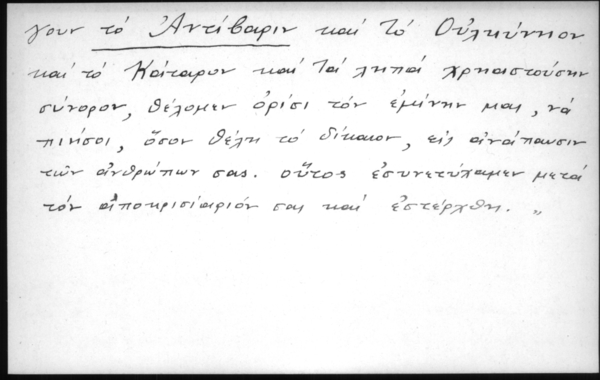 γουν τό Ἀντίβαριν καί τό Οὐλκύνιον
καί τό Κάταρον καί τά λιπά χρηαστούσην
σύνορον, θέλομεν ὁρίσι τόν ἐμίνην μας, νά
πιήσοι, ὅσον θέλη τό δίκαιον, εἰς ἀνάπαυσιν
τῶν ἀνθρώπων σας. οὕτος ἐσυνετύχαμεν μετά
τόν ἀποκρισιαριόν σας καί ἐστέρχθη. „